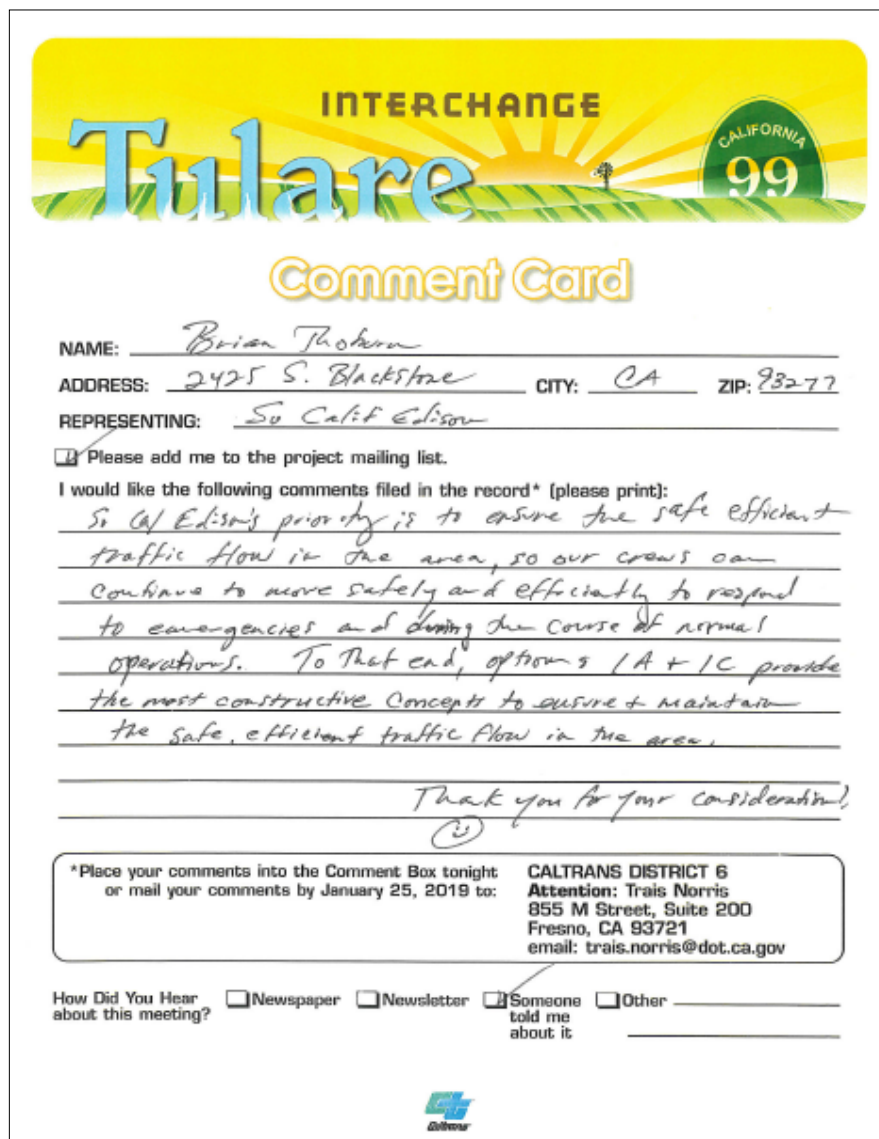 INTERCHANGE
Tulare
CALIFORNIA
99
Comment Card
NAME: Brian Thoburn
ADDRESS: 2425 S. Blackstone CITY: CA ZIP: 93277
REPRESENTING: So Calif Edison
Please add me to the project mailing list.
I would like the following comments filed in the record* (please print):
So Cal Edison's priority is to ensure the safe efficient
traffic flow in the area, so our crews can
continue to move safely and efficiently to respond
to emergencies and during the course of normal
operations. To that end, options 1A + 1C provide
the most constructive concepts to ensure & maintain
the safe, efficient traffic flow in the area.
Thank you for your consideration!
*Place your comments into the Comment Box tonight
or mail your comments by January 25, 2019 to:
CALTRANS DISTRICT 6
Attention: Trais Norris
855 M Street, Suite 200
Fresno, CA 93721
email: trais.norris@dot.ca.gov
How Did You Hear
about this meeting?
Newspaper Newsletter Someone
told me
about it
Other
Caltrans